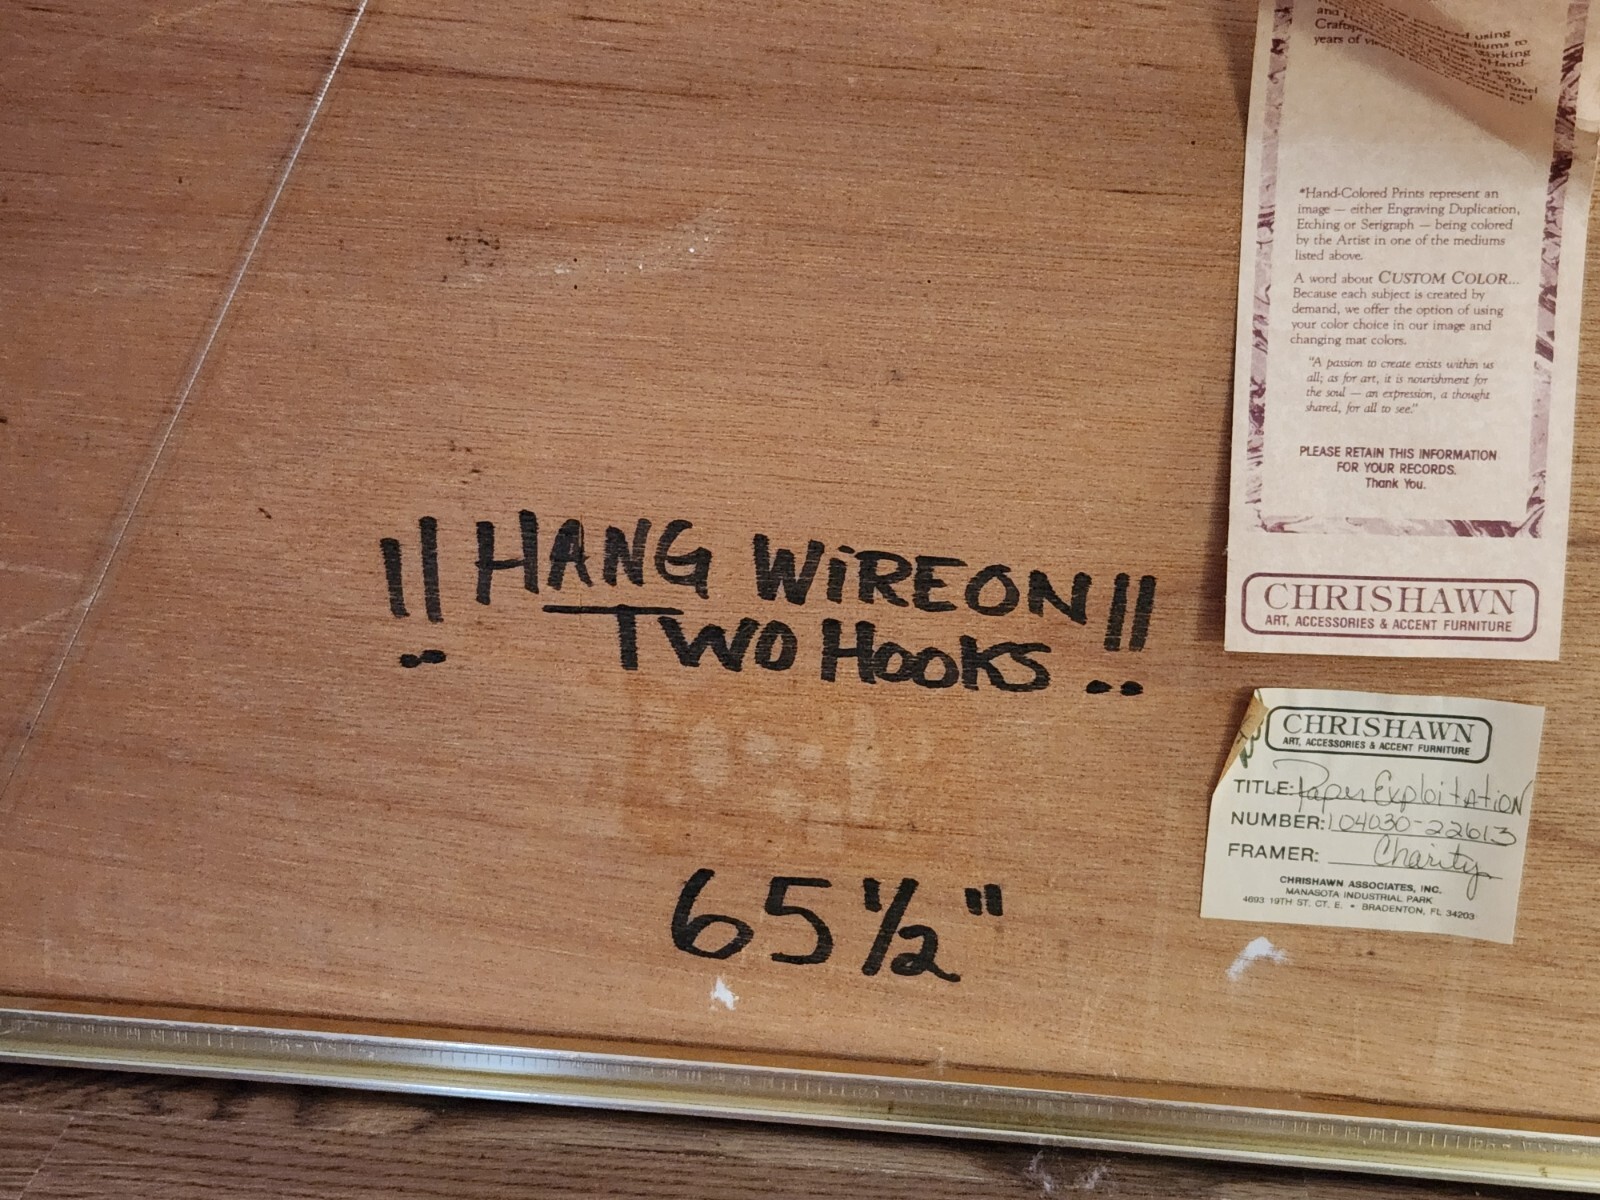 and
using
Crafts
iums to
years of
orking
Hand-
*Hand-Colored Prints represent an
image — either Engraving Duplication,
Etching or Serigraph — being colored
by the Artist in one of the mediums
listed above.
A word about CUSTOM COLOR...
Because each subject is created by
demand, we offer the option of using
your color choice in our image and
changing mat colors.
"A passion to create exists within us
all; as for art, it is nourishment for
the soul — an expression, a thought
shared, for all to see."
PLEASE RETAIN THIS INFORMATION
FOR YOUR RECORDS.
Thank You.
CHRISHAWN
ART, ACCESSORIES & ACCENT FURNITURE
!! HANG WiREON !!
TWO HOOKS
65 1/2"
CHRISHAWN
ART, ACCESSORIES & ACCENT FURNITURE
TITLE: Paper ExploitAtioN
NUMBER: 104030-22613
FRAMER: Charity
CHRISHAWN ASSOCIATES, INC.
MANASOTA INDUSTRIAL PARK
4693 19TH ST. CT. E. • BRADENTON, FL 34203